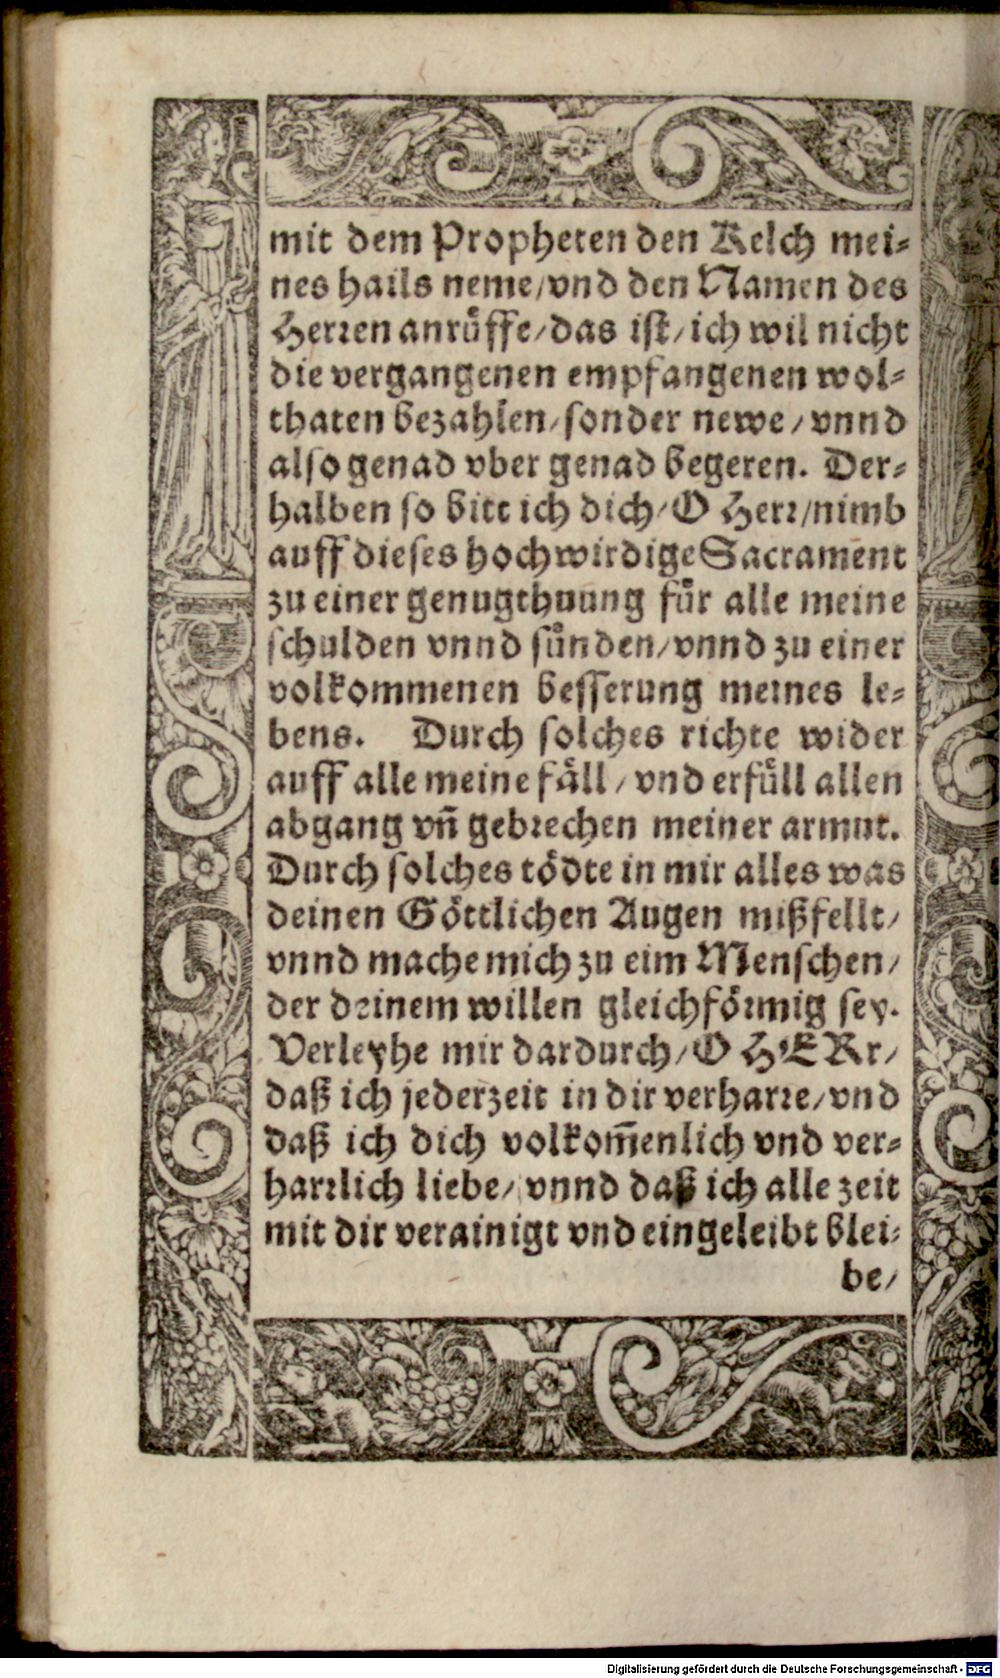 mit dem Propheten den Kelch mei-
nes hails neme/vnd den Namen des
Herren anrůffe/das ist/ich wil nicht
die vergangenen empfangenen wol-
thaten bezahlen/sonder newe/vnnd
also genad vber genad begeren. Der-
halben so bitt ich dich/O Herr/nimb
auff dieses hochwirdige Sacrament
zu einer genugthuung für alle meine
schulden vnnd sünden/vnnd zu einer
volkommenen besserung meines le-
bens. Durch solches richte wider
auff alle meine fäll/vnd erfüll allen
abgang vñ gebrechen meiner armut.
Durch solches tödte in mir alles was
deinen Göttlichen Augen mißfellt/
vnnd mache mich zu eim Menschen/
der deinem willen gleichförmig sey.
Verleyhe mir dardurch/O HERr/
daß ich jederzeit in dir verharre/vnd
daß ich dich volkom̃enlich vnd ver-
harrlich liebe/vnnd daß ich alle zeit
mit dir verainigt vnd eingeleibt blei-
be/
Digitalisierung gefördert durch die Deutsche Forschungsgemeinschaft - DFG